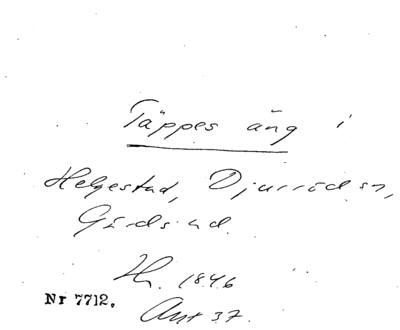 Täppes äng i
Helgestad, Djurröd sn,
Gärds hd.
Hr. 1846
Nr 7712.
Ant 37.